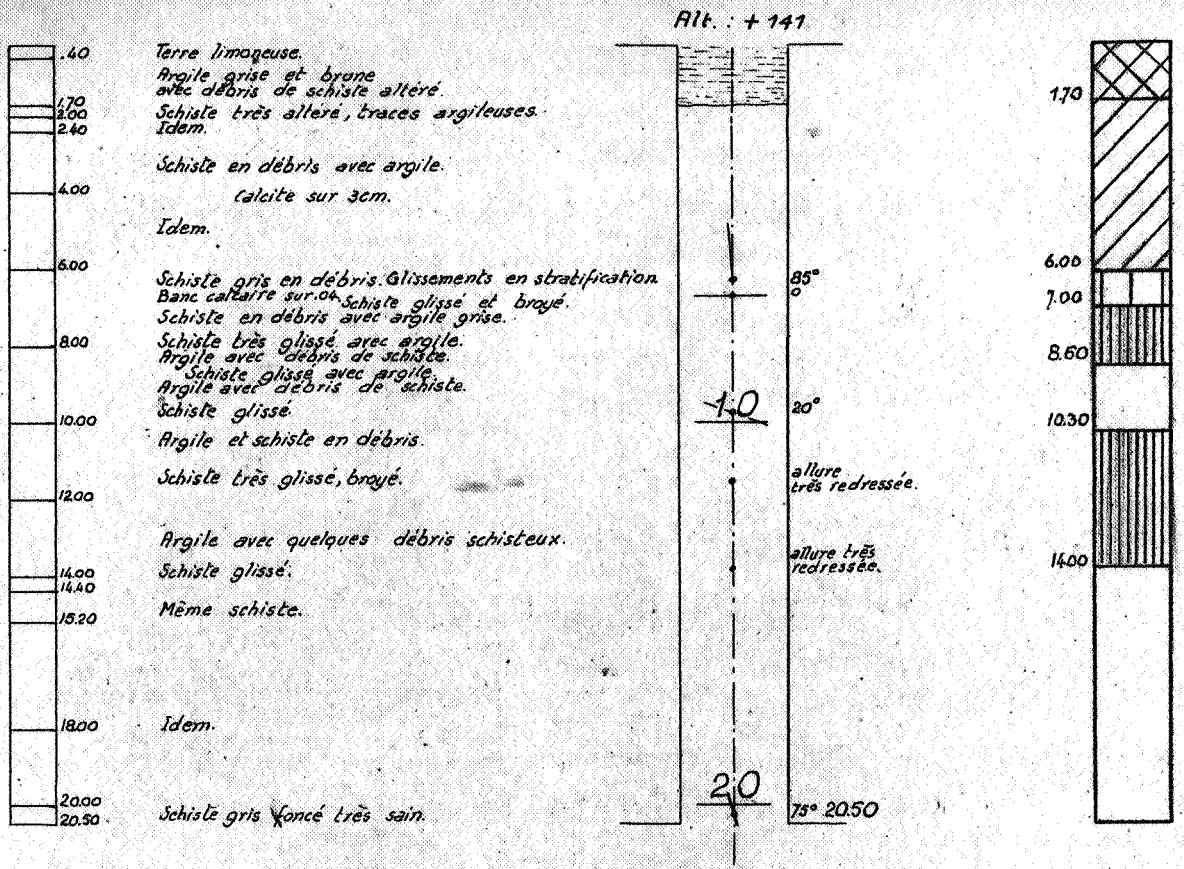 Alt. : + 141
.40
1.70
2.00
2.40
4.00
6.00
8.00
10.00
12.00
14.00
14.40
15.20
18.00
20.00
20.50
Terre limoneuse.
Argile grise et brune
avec débris de schiste altéré.
Schiste très altéré, traces argileuses.
Idem.
Schiste en débris avec argile.
Calcite sur 3cm.
Idem.
Schiste gris en débris. Glissements en stratification
Banc calcaire sur .04 Schiste glissé et broyé.
Schiste en débris avec argile grise.
Schiste très glissé avec argile.
Argile avec débris de schiste.
Schiste glissé avec argile.
Argile avec débris de schiste.
Schiste glissé
Argile et schiste en débris.
Schiste très glissé, broyé.
Argile avec quelques débris schisteux.
Schiste glissé.
Même schiste.
Idem.
Schiste gris foncé très sain.
10
20
85°
0
20°
allure
très redressée.
allure très
redressée.
75° 20.50
1.70
6.00
7.00
8.60
10.30
14.00